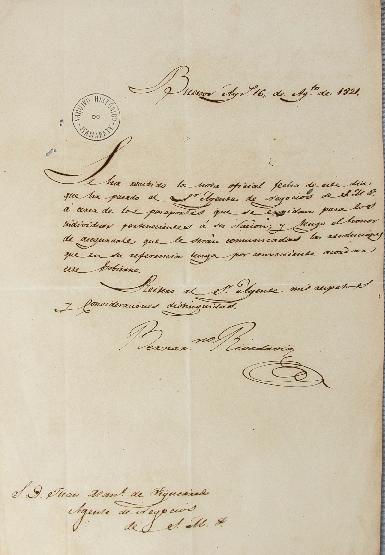 Buenos Ay.s 16 de Ag.to de 1821.
ARCHIVO HISTORICO
Se ha recibido la nota oficial fecha de este dia,
que ha pasado el S.or Agente de Negocios de S. M. F.
á cerca de los pasaportes que se expidan para los
individuos pertenecientes á su Nacion; y tengo el honor
de asegurarle que le serán comunicadas las resoluciones
que en su referencia tenga por conveniente acordar
este Gobierno.
Reitero al S.r Agente mis respetos
y consideraciones distinguidas.
Bernar.no Rivadavia
S. D. Juan Man.l de Figueiredo
Agente de Negocios
de S. M. F.